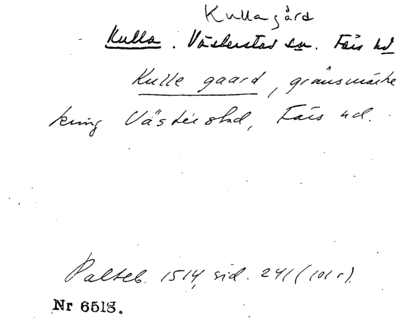 Kullagård
Kulla. Västerstad sn. Färs hd
Kulle gaard, gränsmärke
kring Västerstad, Färs hd.
Palteb. 1514, sid. 241 (101 r).
Nr 6518.